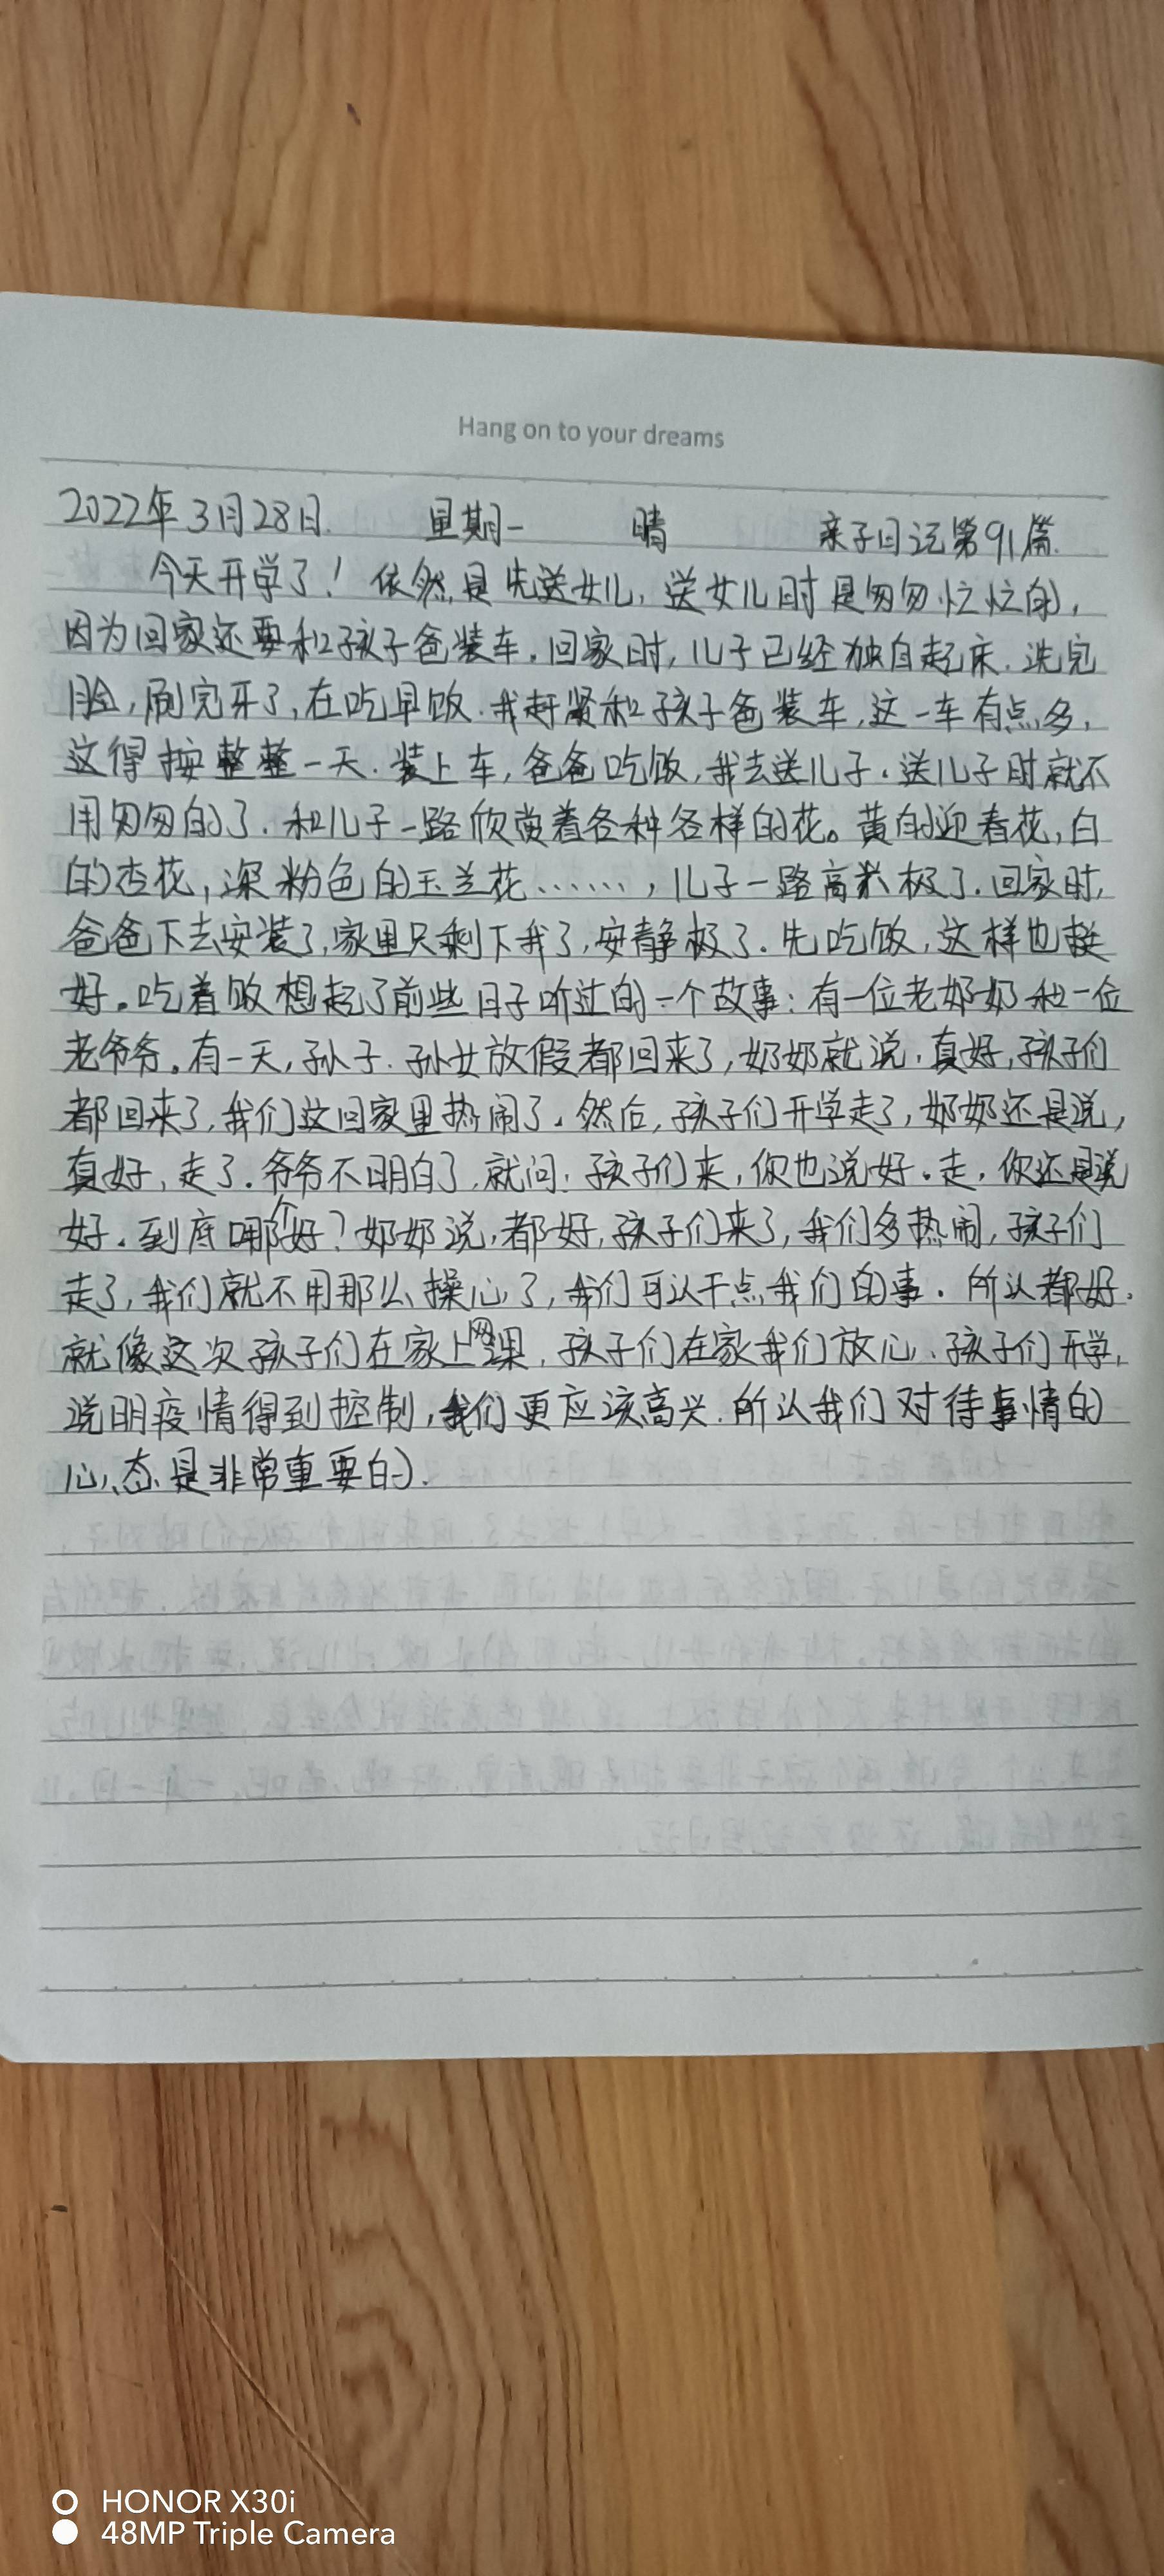 Hang on to your dreams
2022年3月28日. 星期一 晴 亲子日记第91篇.
今天开学了！依然是先送女儿，送女儿时是匆匆忙忙的，
因为回家还要和孩子爸装车。回家时，儿子已经独自起床.洗完
脸，刷完牙了，在吃早饭.我赶紧和孩子爸装车，这一车有点多，
这得按整整一天.装上车，爸爸吃饭，我去送儿子.送儿子时就不
用匆匆的了.和儿子一路欣赏着各种各样的花。黄的迎春花，白
的杏花，深粉色的玉兰花……，儿子一路高兴极了.回家时，
爸爸下去安装了，家里只剩下我了，安静极了.先吃饭，这样也挺
好。吃着饭想起了前些日子听过的一个故事：有一位老奶奶和一位
老爷爷。有一天，孙子.孙女放假都回来了，奶奶就说.真好，孩子们
都回来了，我们这回家里热闹了.然后，孩子们开学走了，奶奶还是说，
真好，走了.爷爷不明白了.就问：孩子们来，你也说好.走，你还是说
好.到底哪个好？奶奶说，都好，孩子们来了，我们多热闹，孩子们
走了，我们就不用那么操心了，我们可以干点我们的事.所以都好.
就像这次孩子们在家上网课，孩子们在家我们放心.孩子们开学，
说明疫情得到控制，我们更应该高兴.所以我们对待事情的
心态是非常重要的.
HONOR X30i
48MP Triple Camera